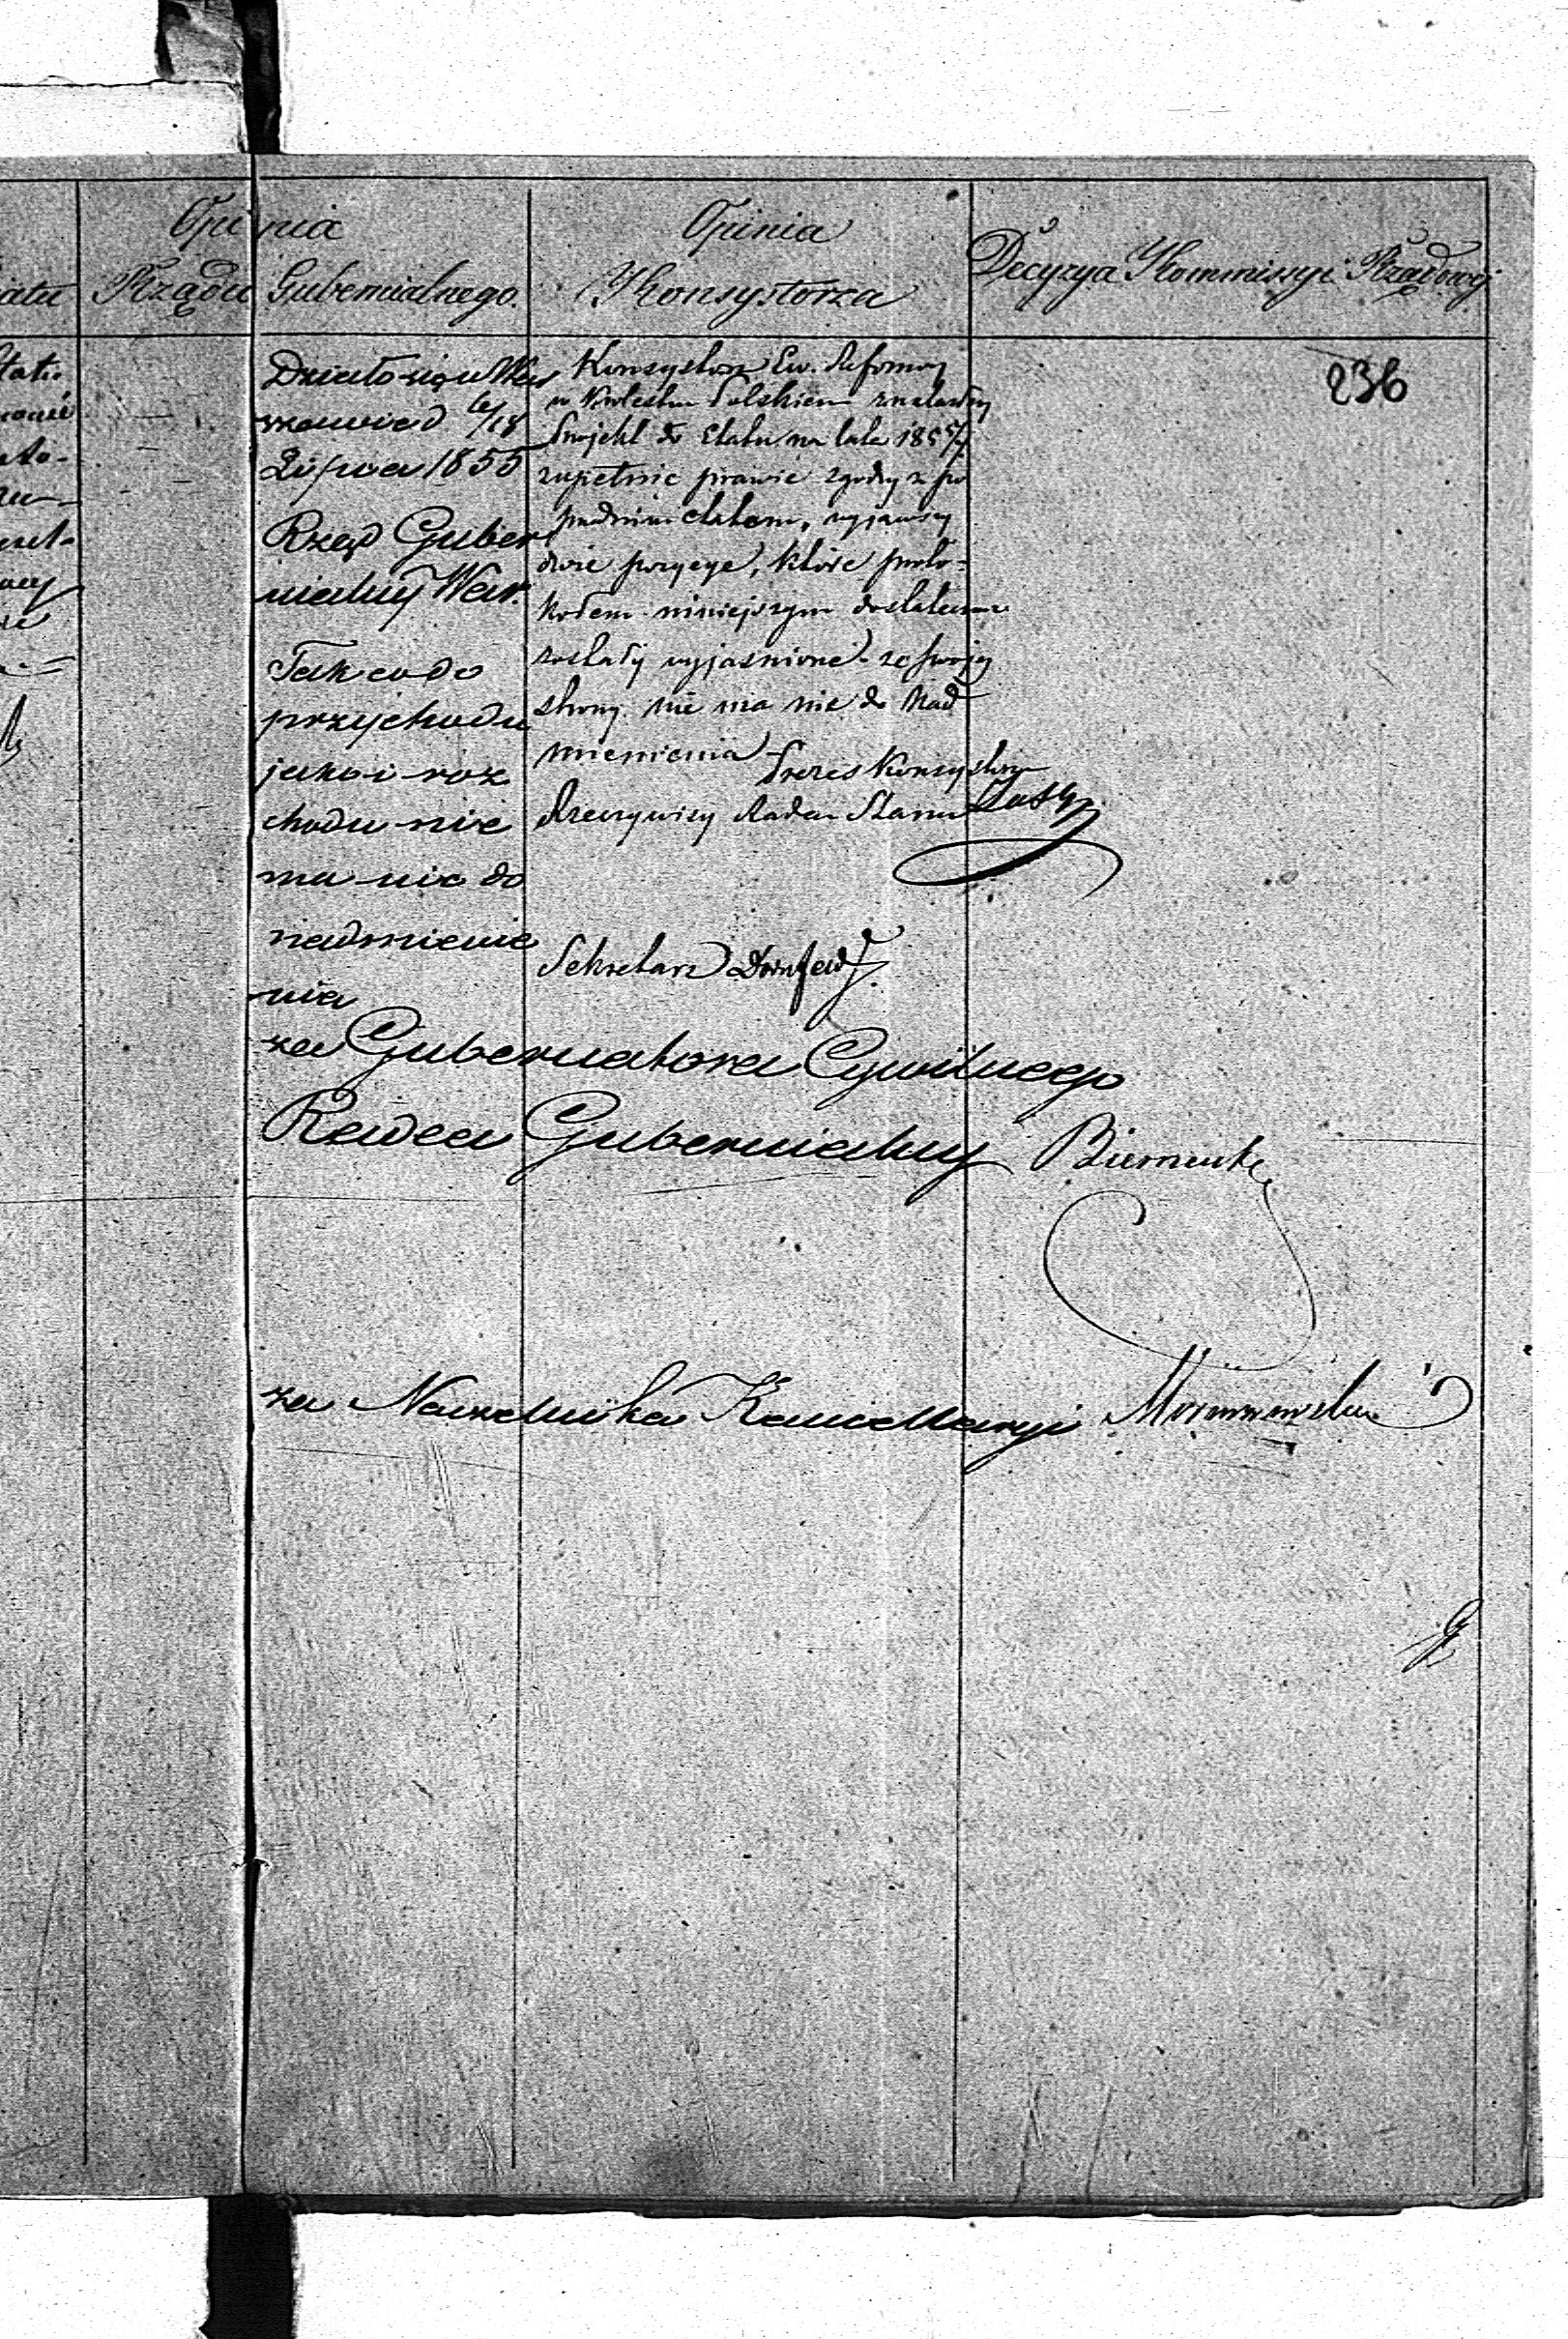 Opinia
Rządu Gubernialnego.
Opinia
Konsystorza
Decyzya Kommissyi Rządowej
236
Działo się w War
szawie d 6/18
Lipca 1855
Rząd Guber
nialny War.
Tak co do
przychodu
jako i roz
chodu nie
ma nic do
nadmienie
nia
Konsystorz Ew. Reformow
w Królestwie Polskiem znalazłszy
Projekt do Etatu na lata 1855/
zupełnie prawie zgodny z po
przednim etatem, wyjąwszy
dwie pozycye, które proto-
kołem niniejszym dostatecznie
zostały wyjaśnione - ze swojej
strony nie ma nic do nad
mienienia -
Prezes Konsystorza
Rzeczywisty Radca Stanu
Sekretarz
za Gubernatora Cywilnego
Radca Gubernialny Biernacki
za Naczelnika Kancellaryi